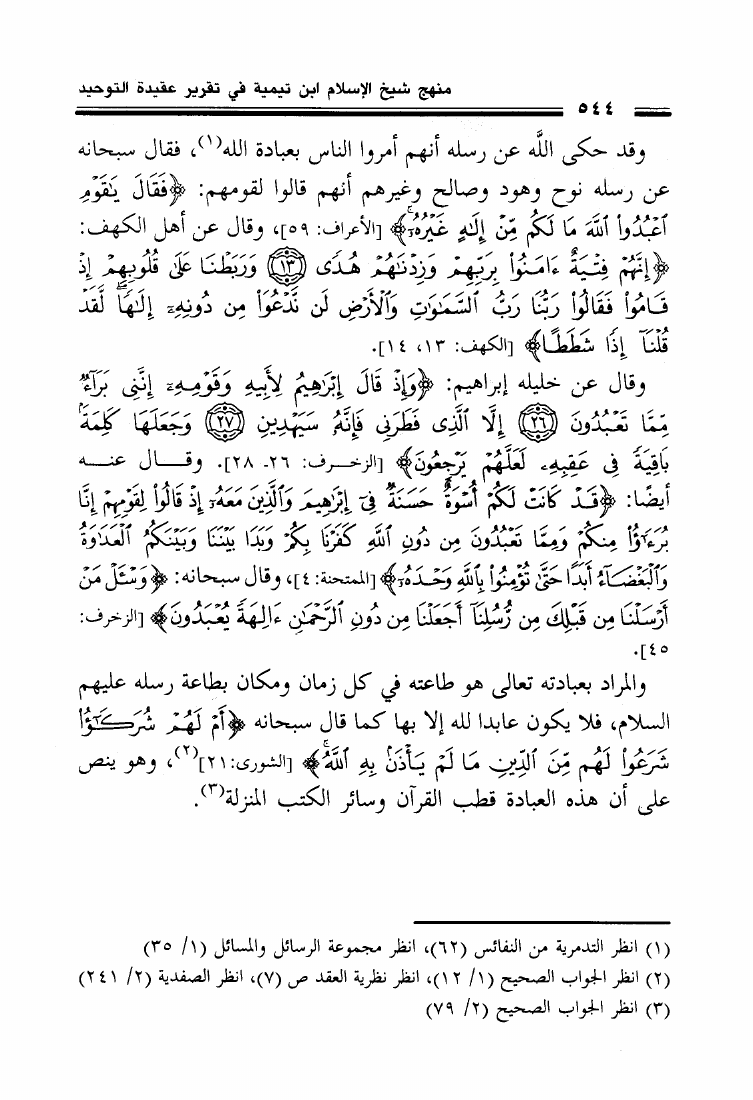 منهج شيخ الإسلام ابن تيمية في تقرير عقيدة التوحيد
٥٤٤
وقد حكى اللَّه عن رسله أنهم أمروا الناس بعبادة الله(١)، فقال سبحانه
عن رسله نوح وهود وصالح وغيرهم أنهم قالوا لقومهم: ﴿فَقَالَ يَٰقَوْمِ
ٱعْبُدُوا۟ ٱللَّهَ مَا لَكُم مِّنْ إِلَٰهٍ غَيْرُهُۥٓ﴾ [الأعراف: ٥٩]، وقال عن أهل الكهف:
﴿إِنَّهُمْ فِتْيَةٌ ءَامَنُوا۟ بِرَبِّهِمْ وَزِدْنَٰهُمْ هُدًى ۝١٣ وَرَبَطْنَا عَلَىٰ قُلُوبِهِمْ إِذْ
قَامُوا۟ فَقَالُوا۟ رَبُّنَا رَبُّ ٱلسَّمَٰوَٰتِ وَٱلْأَرْضِ لَن نَّدْعُوَا۟ مِن دُونِهِۦٓ إِلَٰهًا ۖ لَّقَدْ
قُلْنَآ إِذًا شَطَطًا﴾ [الكهف: ١٣، ١٤].
وقال عن خليله إبراهيم: ﴿وَإِذْ قَالَ إِبْرَٰهِيمُ لِأَبِيهِ وَقَوْمِهِۦٓ إِنَّنِى بَرَآءٌ
مِّمَّا تَعْبُدُونَ ۝٢٦ إِلَّا ٱلَّذِى فَطَرَنِى فَإِنَّهُۥ سَيَهْدِينِ ۝٢٧ وَجَعَلَهَا كَلِمَةًۢ
بَاقِيَةً فِى عَقِبِهِۦ لَعَلَّهُمْ يَرْجِعُونَ﴾ [الزخـرف: ٢٦ـ ٢٨]. وقـــال عنـــه
أيضًا: ﴿قَدْ كَانَتْ لَكُمْ أُسْوَةٌ حَسَنَةٌ فِىٓ إِبْرَٰهِيمَ وَٱلَّذِينَ مَعَهُۥٓ إِذْ قَالُوا۟ لِقَوْمِهِمْ إِنَّا
بُرَءَٰٓؤُا۟ مِنكُمْ وَمِمَّا تَعْبُدُونَ مِن دُونِ ٱللَّهِ كَفَرْنَا بِكُمْ وَبَدَا بَيْنَنَا وَبَيْنَكُمُ ٱلْعَدَٰوَةُ
وَٱلْبَغْضَآءُ أَبَدًا حَتَّىٰ تُؤْمِنُوا۟ بِٱللَّهِ وَحْدَهُۥٓ﴾ [الممتحنة: ٤]، وقال سبحانه: ﴿وَسْـَٔلْ مَنْ
أَرْسَلْنَا مِن قَبْلِكَ مِن رُّسُلِنَآ أَجَعَلْنَا مِن دُونِ ٱلرَّحْمَٰنِ ءَالِهَةً يُعْبَدُونَ﴾ [الزخرف:
٤٥].
والمراد بعبادته تعالى هو طاعته في كل زمان ومكان بطاعة رسله عليهم
السلام، فلا يكون عابدا لله إلا بها كما قال سبحانه ﴿أَمْ لَهُمْ شُرَكَٰٓؤُا۟
شَرَعُوا۟ لَهُم مِّنَ ٱلدِّينِ مَا لَمْ يَأْذَنۢ بِهِ ٱللَّهُ ۚ﴾ [الشورى: ٢١](٢)، وهو ينص
على أن هذه العبادة قطب القرآن وسائر الكتب المنزلة(٣).
(١) انظر التدمرية من النفائس (٦٢)، انظر مجموعة الرسائل والمسائل (١/ ٣٥)
(٢) انظر الجواب الصحيح (١/ ١٢)، انظر نظرية العقد ص (٧)، انظر الصفدية (٢/ ٢٤١)
(٣) انظر الجواب الصحيح (٢/ ٧٩)